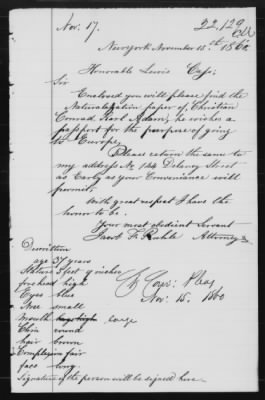 Nov. 17.
22,129
New York November 15.st 1860
Honorable Lewis Cass;
Sir
Enclosed you will please find the
Naturalization paper of, Christian
Conrad, Karl Adam, he wishes a
passport for the purpose of going
to Europe,
Please return the same to
my address No 124 Delancy Street
as Early as your Convenience will
permit,
With great respect I have the
honor to be.
Your most obedient Servant
Jacob F. Ruhle Attorney
Description
age 37 years
Stature 5 feet 9 inches
forehead high
Eyes blue
Nose small
Mouth large
Chin round
hair brown
Complexion fair
face long.
Nov. 15. 1860
Signature of the person will be signed here